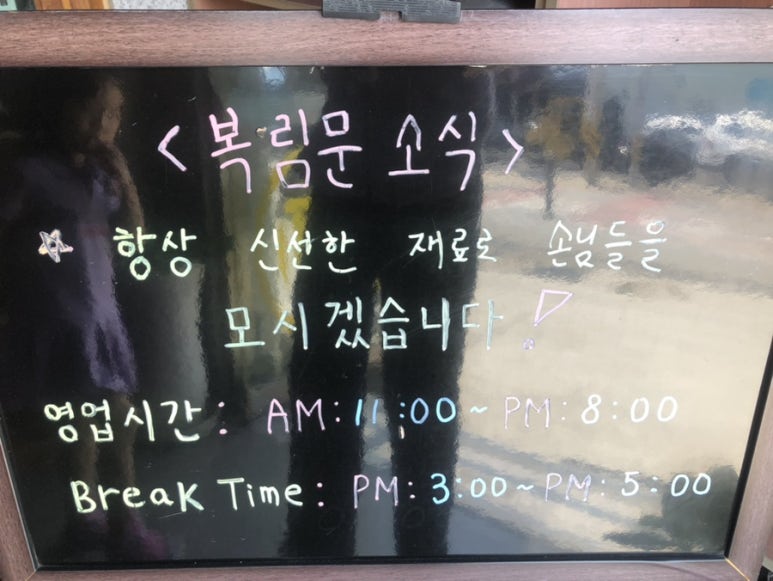 <복림문 소식>
☆ 항상 신선한 재료로 손님들을
모시겠습니다!
영업시간: AM:11:00~PM:8:00
Break Time: PM:3:00~PM:5:00